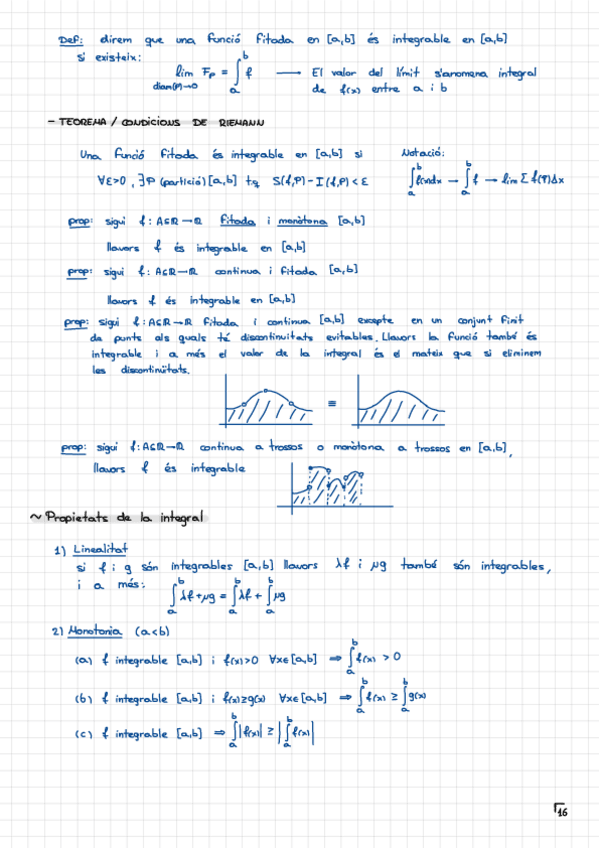 Def: direm que una funció fitada en [a,b] és integrable en [a,b]
si existeix:
lim F_P = ∫_a^b f → El valor del límit s'anomena integral
diam(P)→0 de f(x) entre a i b
- TEOREMA / CONDICIONS DE RIEMANN
Una funció fitada és integrable en [a,b] si Notació:
∀ε>0, ∃P (partició) [a,b] t.q. S(f,P) - I(f,P) < ε ∫_a^b f(x)dx → ∫_a^b f → lim Σ f(φ)Δx
prop: sigui f: A⊆ℝ→ℝ fitada i monòtona [a,b]
llavors f és integrable en [a,b]
prop: sigui f: A⊆ℝ→ℝ continua i fitada [a,b]
llavors f és integrable en [a,b]
prop: sigui f: A⊆ℝ→ℝ fitada i continua [a,b] excepte en un conjunt finit
de punts als quals té discontinuitats evitables. Llavors la funció també és
integrable i a més el valor de la integral és el mateix que si eliminem
les discontinuïtats.
≡
prop: sigui f: A⊆ℝ→ℝ continua a trossos o monòtona a trossos en [a,b],
llavors f és integrable
~ Propietats de la integral
1) Linealitat
si f i g són integrables [a,b] llavors λf i μg també són integrables,
i a més: ∫_a^b λf + μg = ∫_a^b λf + ∫_a^b μg
2) Monotonia (a<b)
(a) f integrable [a,b] i f(x)>0 ∀x∈[a,b] ⇒ ∫_a^b f(x) > 0
(b) f integrable [a,b] i f(x)≥g(x) ∀x∈[a,b] ⇒ ∫_a^b f(x) ≥ ∫_a^b g(x)
(c) f integrable [a,b] ⇒ ∫_a^b |f(x)| ≥ |∫_a^b f(x)|
16